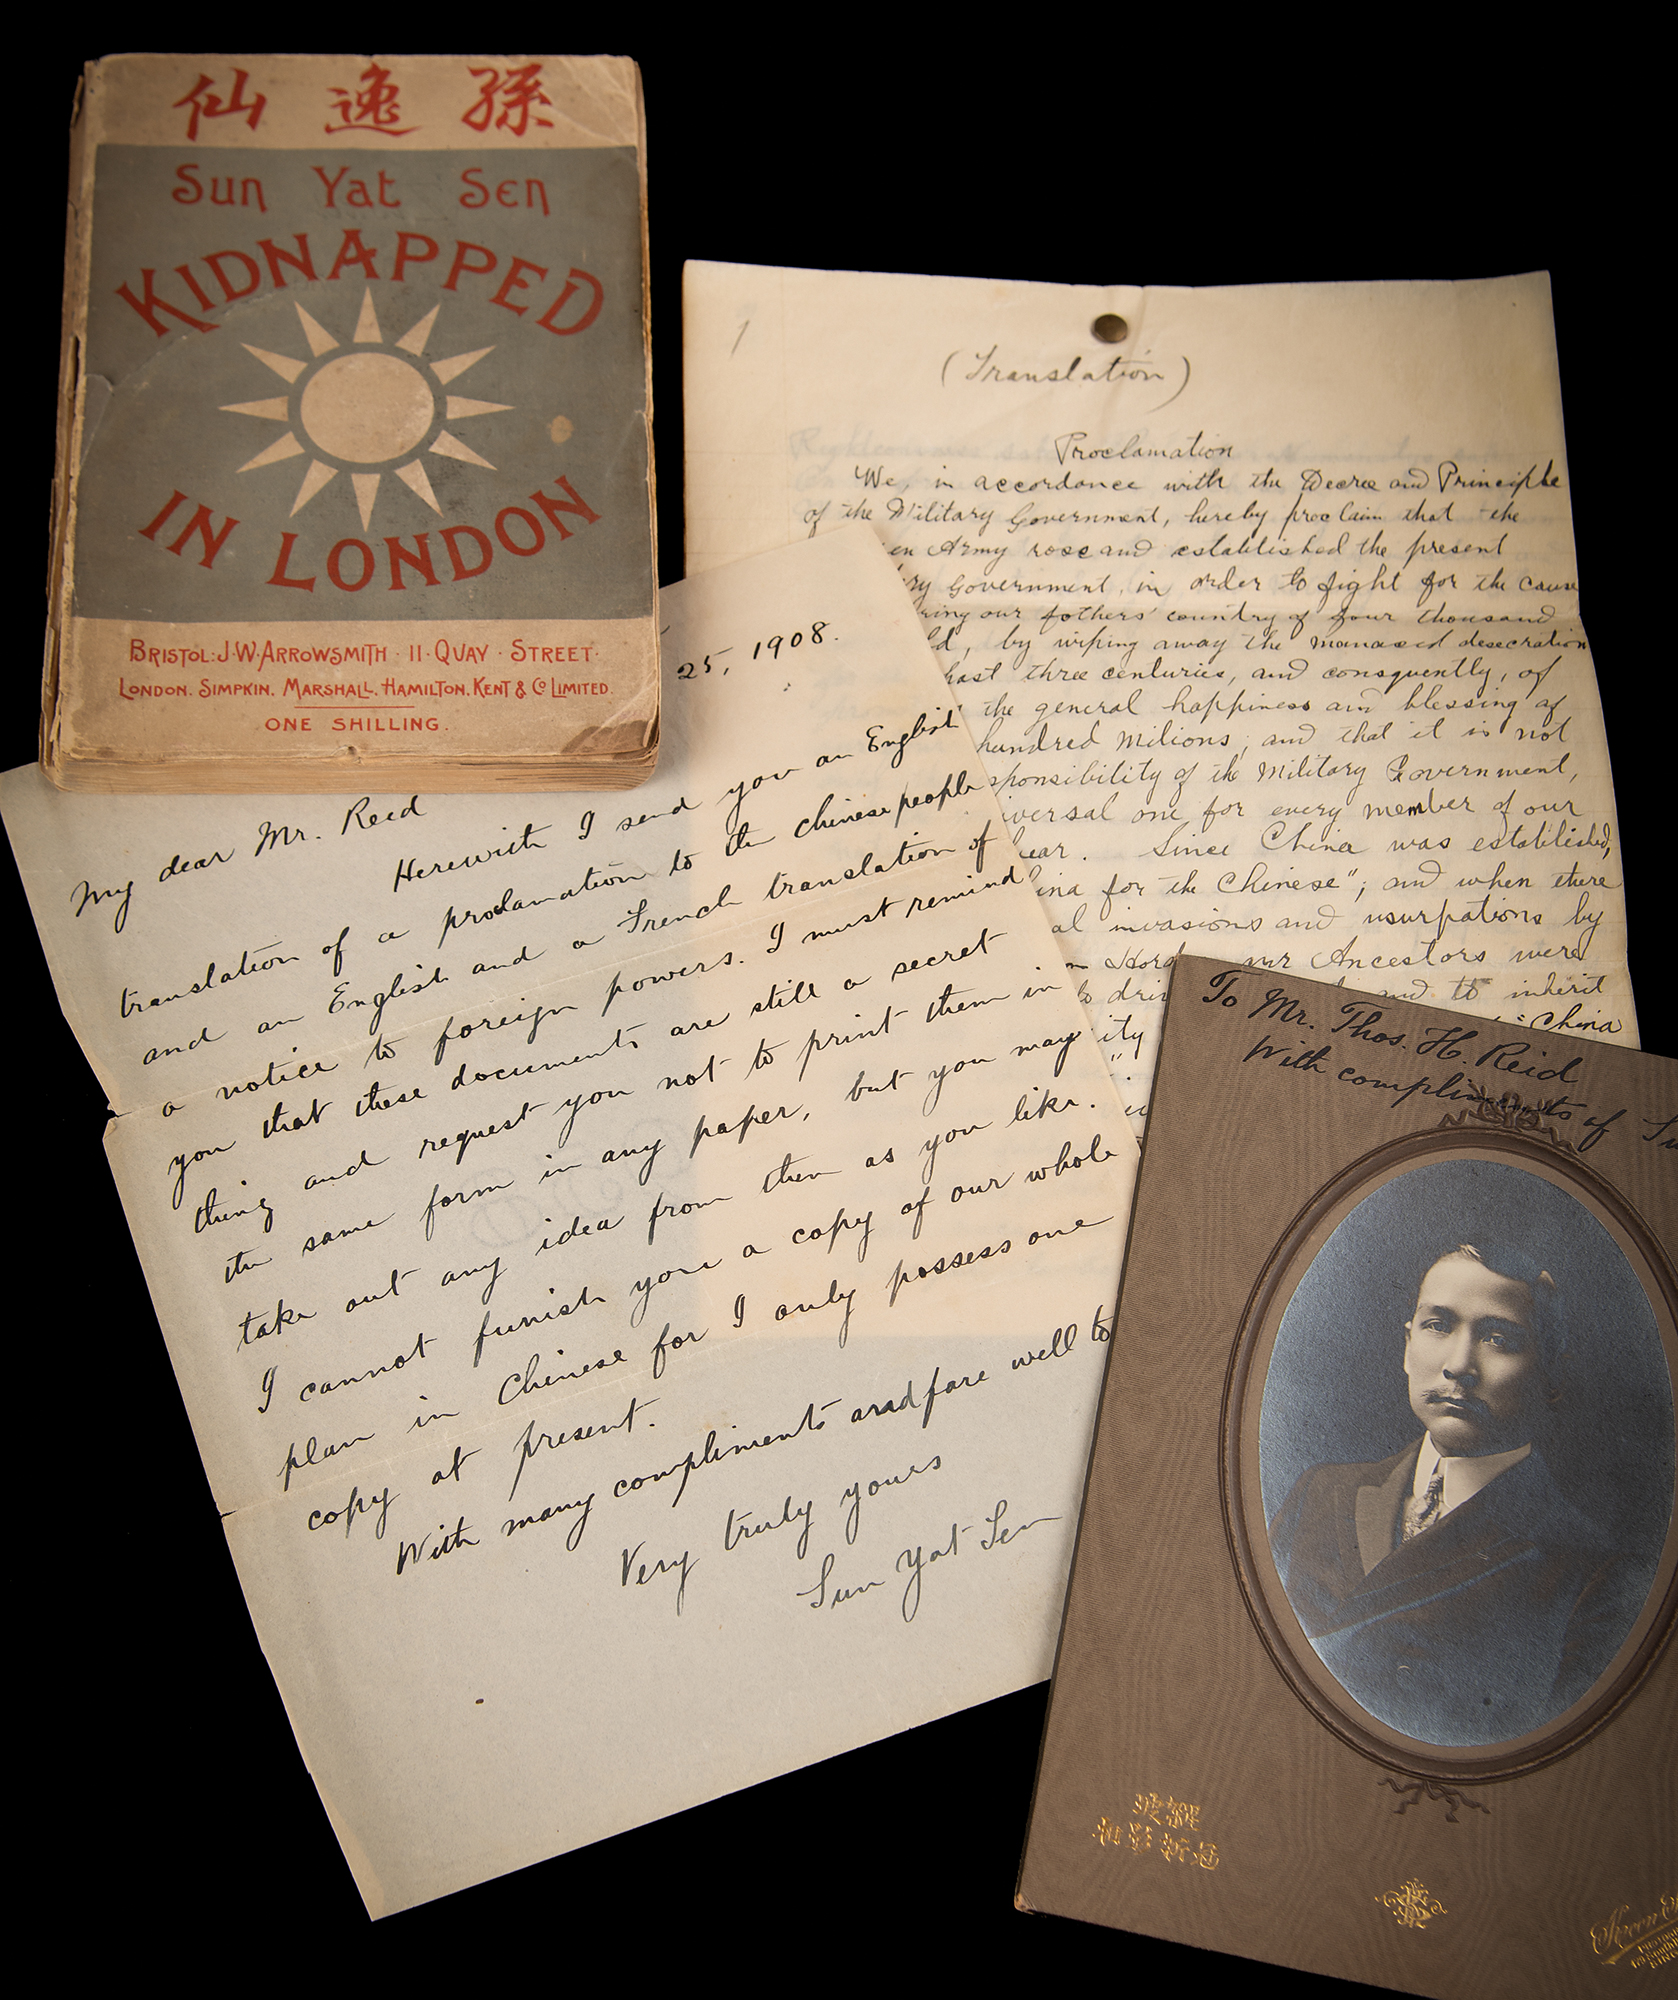 孫逸仙
Sun Yat Sen
KIDNAPPED
IN LONDON
BRISTOL: J·W·ARROWSMITH · 11 · QUAY · STREET·
LONDON. SIMPKIN. MARSHALL. HAMILTON. KENT & Co LIMITED.
ONE SHILLING.
1
(Translation)
Proclamation
We, in accordance with the Decree and Principle
of the Military Government, hereby proclaim that the
en Army rose and established the present
ry Government, in order to fight for the cause
ring our fothers' country of four thousand
ld, by wiping away the manaced desecration
hast three centuries, and consquently, of
the general happiness and blessing of
hundred milions; and that it is not
sponsibility of the Military Government,
iversal one for every member of our
ear. Since China was established,
ina for the Chinese"; and when there
al invasions and usurpations by
n Hord our Ancestors were
to dri and to inherit
"China
ity
25, 1908.
My dear Mr. Reed
Herewith I send you an English
translation of a proclamation to the chinese people
and an English and a French translation of
a notice to foreign powers. I must remind
you that these documents are still a secret
thing and request you not to print them in
the same form in any paper, but you may
take out any idea from them as you like.
I cannot funish you a copy of our whole
plan in Chinese for I only possess one
copy at present.
With many compliments and fare well to
Very truly yours
Sun Yat Sen
To Mr. Thos. H. Reid
With compliments of Su